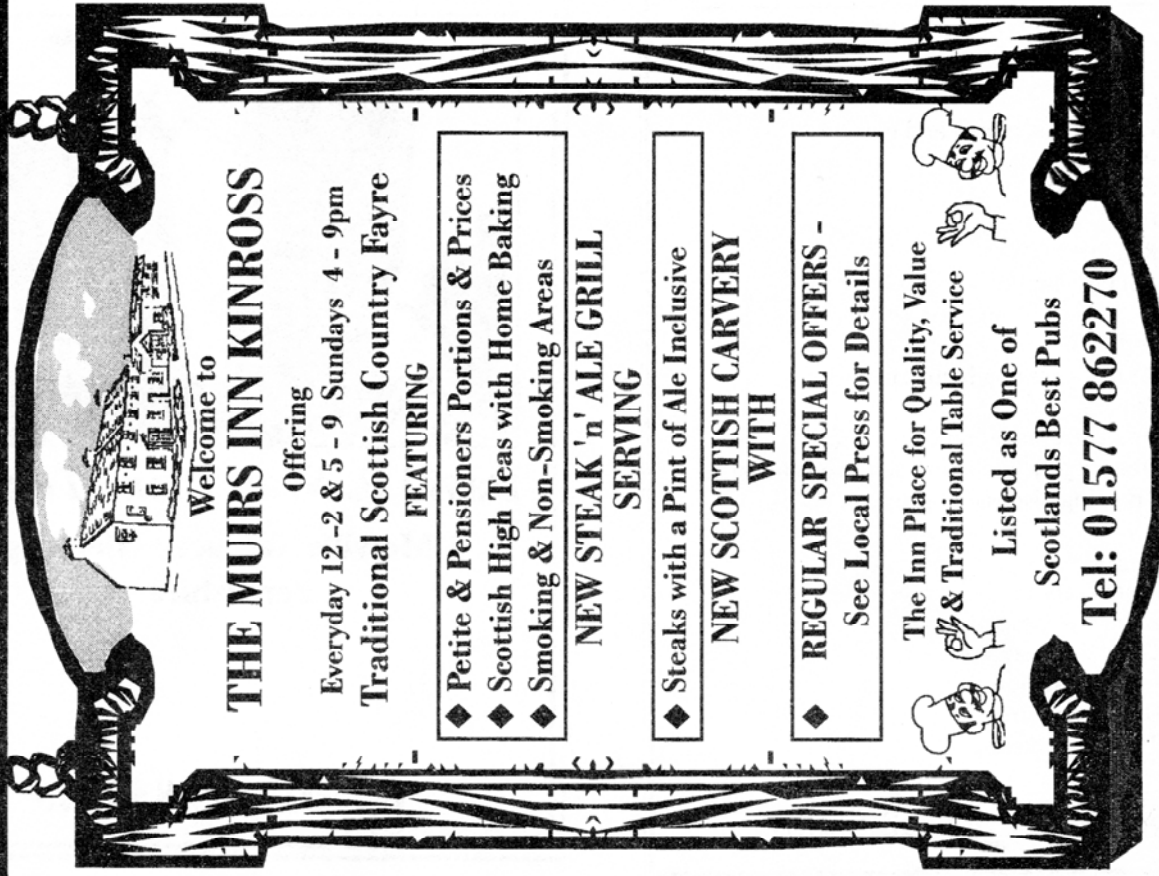 Welcome to
THE MUIRS INN KINROSS
Offering
Everyday 12-2 & 5 - 9 Sundays 4 - 9pm
Traditional Scottish Country Fayre
FEATURING
◆ Petite & Pensioners Portions & Prices
◆ Scottish High Teas with Home Baking
◆ Smoking & Non-Smoking Areas
NEW STEAK 'n' ALE GRILL
SERVING
◆ Steaks with a Pint of Ale Inclusive
NEW SCOTTISH CARVERY
WITH
◆ REGULAR SPECIAL OFFERS -
See Local Press for Details
The Inn Place for Quality, Value
& Traditional Table Service
Listed as One of
Scotlands Best Pubs
Tel: 01577 862270